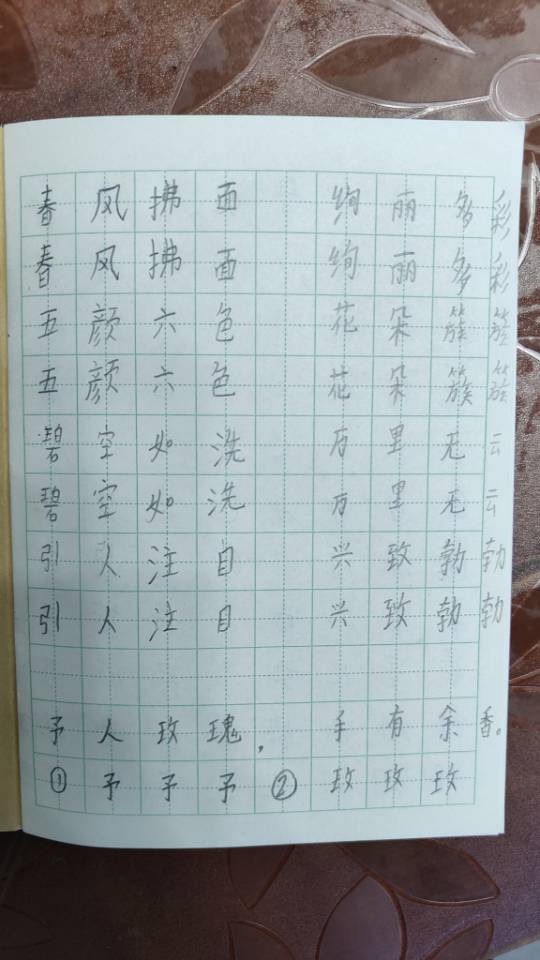 春风拂面 绚丽多彩
春风拂面 绚丽多彩
五颜六色 花朵簇簇
五颜六色 花朵簇簇
碧空如洗 万里无云
碧空如洗 万里无云
引人注目 兴致勃勃
引人注目 兴致勃勃
予人玫瑰，手有余香。
①予予予 ②玫玫玫